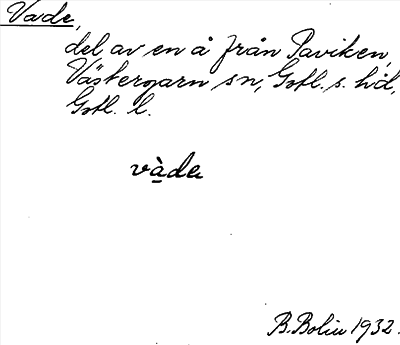 Vade,
del av en å från Paviken,
Västergarn sn, Gotl. s. hd,
Gotl. l.
vàda
B. Bolin 1932.